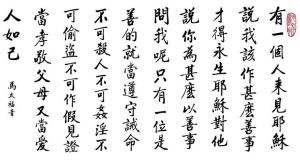 有一個人来見耶穌
說我該作甚麼善事
才得永生耶穌對他
說你為甚麼以善事
問我呢只有一位是
善的就當遵守誡命
不可殺人不可姦淫不
可偷盜不可作假見證
當孝敬父母又當愛
人如己
馬太福音